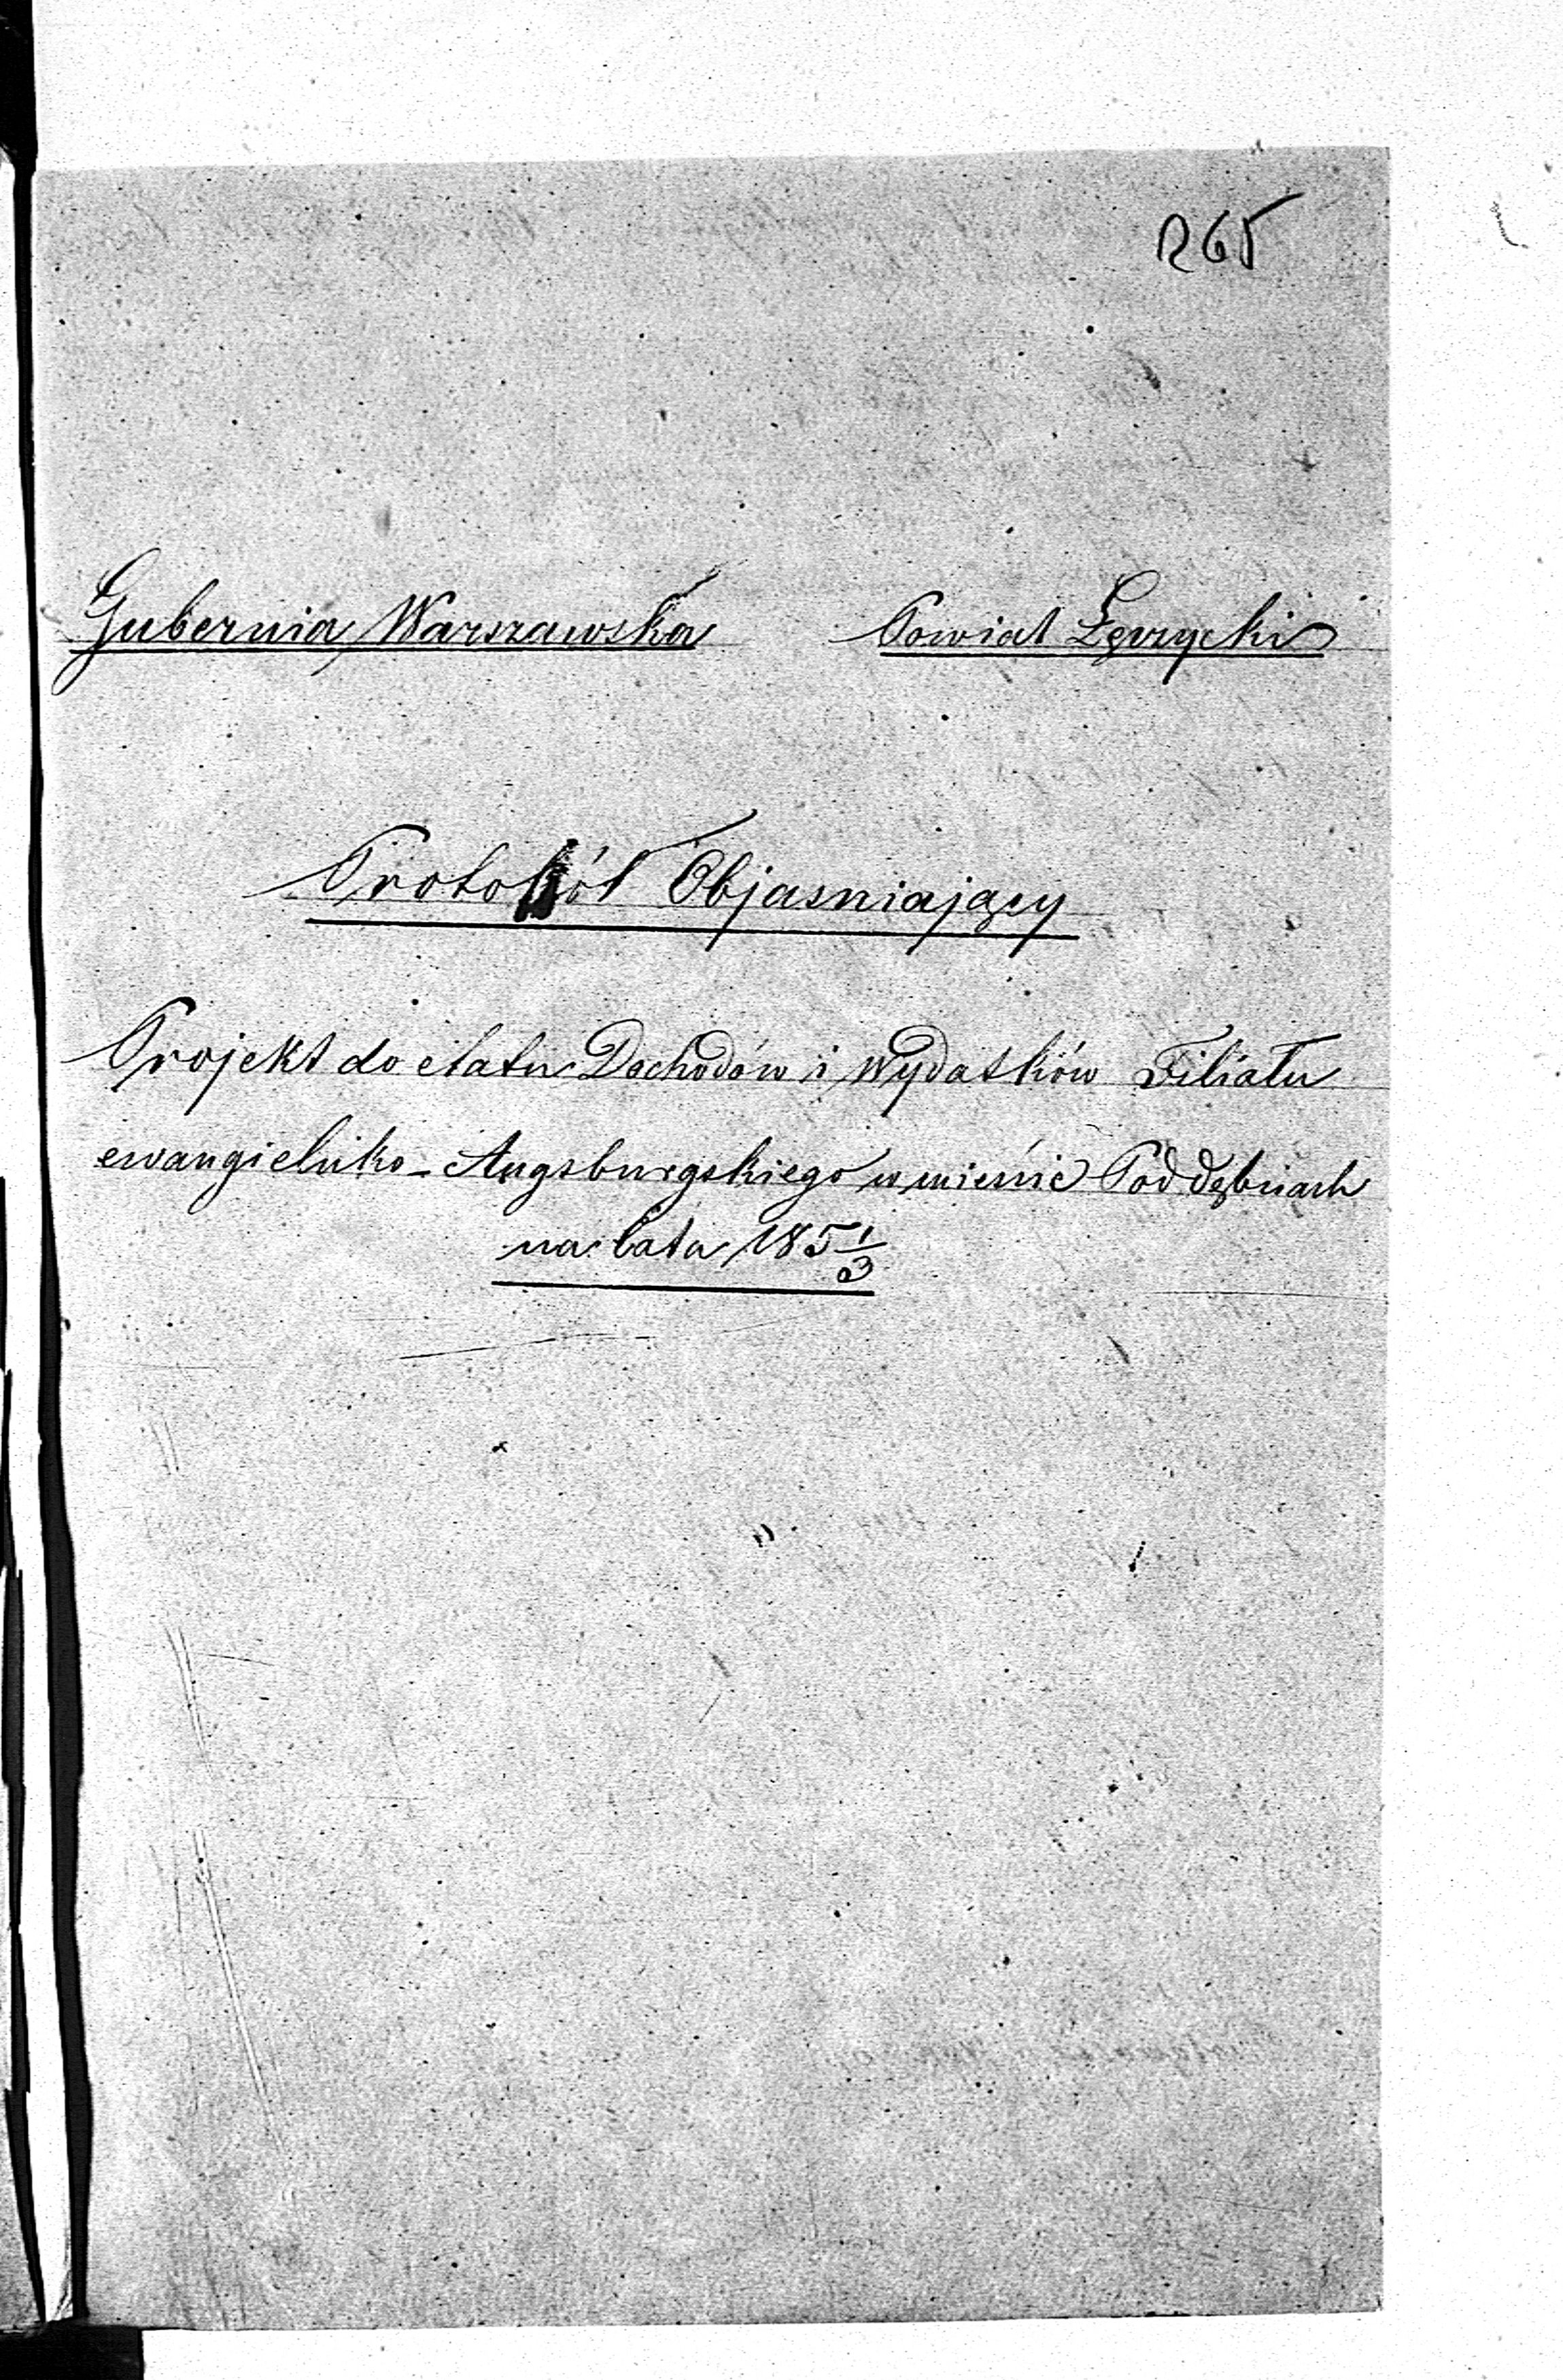 265
Gubernia Warszawska Powiat Łęczycki
Protokół Objasniający
Projekt do etatu Dochodów i Wydatków Filiału
ewangielicko-Augsburgskiego w mieście Poddębicach
na lata 185 1/3